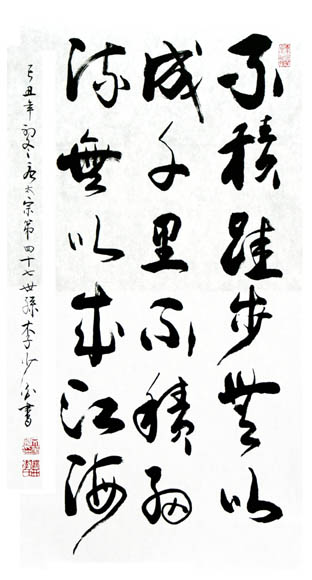 不積跬步無以
成千里不積細
流無以成江海
己丑年初冬唐太宗第四十七世孫李少書